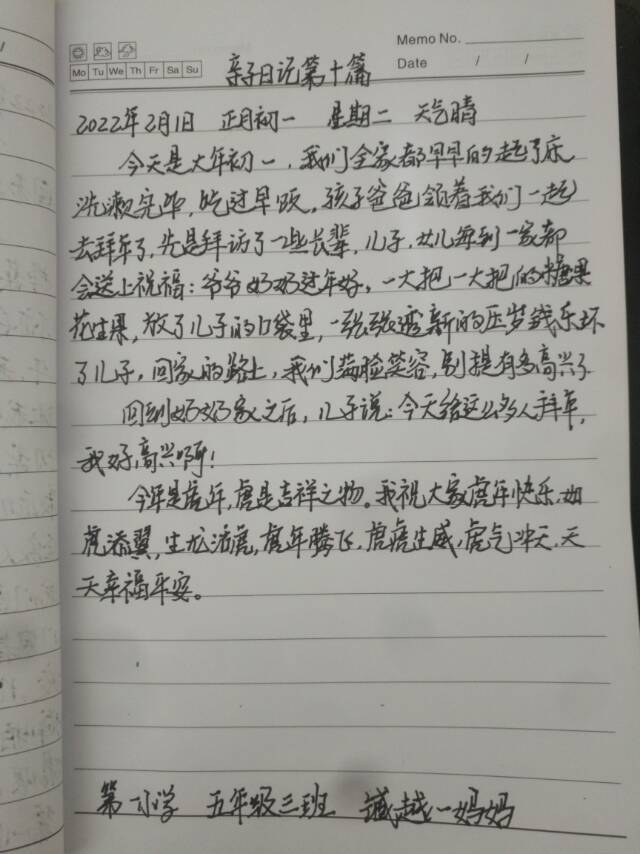 Memo No.
Mo Tu We Th Fr Sa Su
Date / /
亲子日记第十篇
2022年2月1日 正月初一 星期二 天气晴
今天是大年初一，我们全家都早早的起了床，
洗漱完毕，吃过早饭，孩子爸爸领着我们一起
去拜年了，先是拜访了一些长辈，儿子，女儿每到一家都
会送上祝福：爷爷奶奶过年好，一大把一大把的糖果
花生果，放了儿子的口袋里，一张张透新的压岁钱乐坏
了儿子，回家的路上，我们满脸笑容，别提有多高兴了
回到奶奶家之后，儿子说：今天给这么多人拜年，
我好高兴啊！
今年是虎年，虎是吉祥之物。我祝大家虎年快乐，如
虎添翼，生龙活虎，虎年腾飞，虎虎生威，虎气冲天，天
天幸福平安。
第一小学 五年级三班 臧越一妈妈